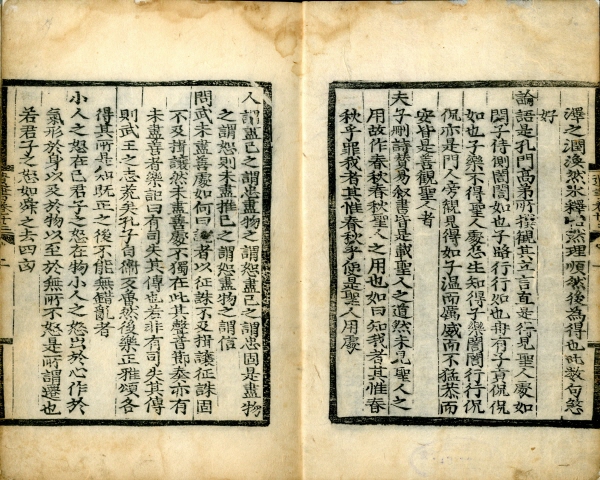 澤之潤渙然氷釋怡然理順然後為得也此數句慤
好
論語是孔門高弟所撰觀其立言直是行見聖人處如
閔子侍側誾誾如也子路行行如也冉有子貢侃侃
如也子樂不得聖人處怎生知得子樂誾誾行行侃
侃亦是門人旁觀見得如子溫而厲威而不猛恭而
安皆是善觀聖人者
夫子刪詩贊易叙書皆是載聖人之道然未見聖人之
用故作春秋春秋聖人之用也如曰知我者其惟春
秋乎罪我者其惟春秋乎便是聖人用處
人謂盡己之謂忠盡物之謂恕盡己之謂忠固是盡物
之謂恕則未盡推己之謂恕盡物之謂信
問武未盡善處如何曰說者以征誅不及揖讓征誅固
不及揖讓然未盡善處不獨在此其聲音節奏亦有
未盡善者樂記曰有司失其傳也若非有司失其傳
則武王之志荒矣孔子自衛反魯然後樂正雅頌各
得其所是知既正之後不能無錯亂者
小人之怒在己君子之怒在物小人之怒出於心作於
氣形於身以及於物以至於無所不怒是所謂遷也
若君子之怒如舜之去四凶